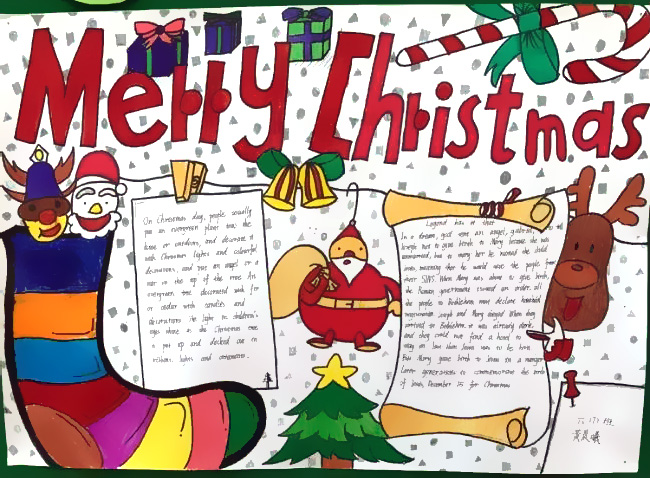 Merry Christmas
On Christmas day, people usually
put an evergreen plant
house or and decorate it
with Christmas lights and colourful
decorations, and put an angel or a
star in the top of the tree. An
evergreen tree decorated with fir
or cedar with candles and
decorations. The light in children's
eyes shine as the Christmas tree
is put up and decked out in
ribbons, lights and ornaments.
Legend has it that
In a dream, god sent an angel, gabriel, to tell
Joseph not to give birth to Mary because she was
unmarried, but to marry her he named the child
Jesus, meaning that he would save the people from
their SINS. When Mary was about to give birth,
the Roman government issued an order all
the people to Bethlehem must declare household
Joseph and Mary obeyed. When they
arrived to Bethlehem it was already dark,
and they could not find a hotel to
stay in
But Mary gave birth to Jesus in a manger
Later generations to commemorate the birth
of Jesus, December 25 for Christmas
六(7)班
黄晨曦